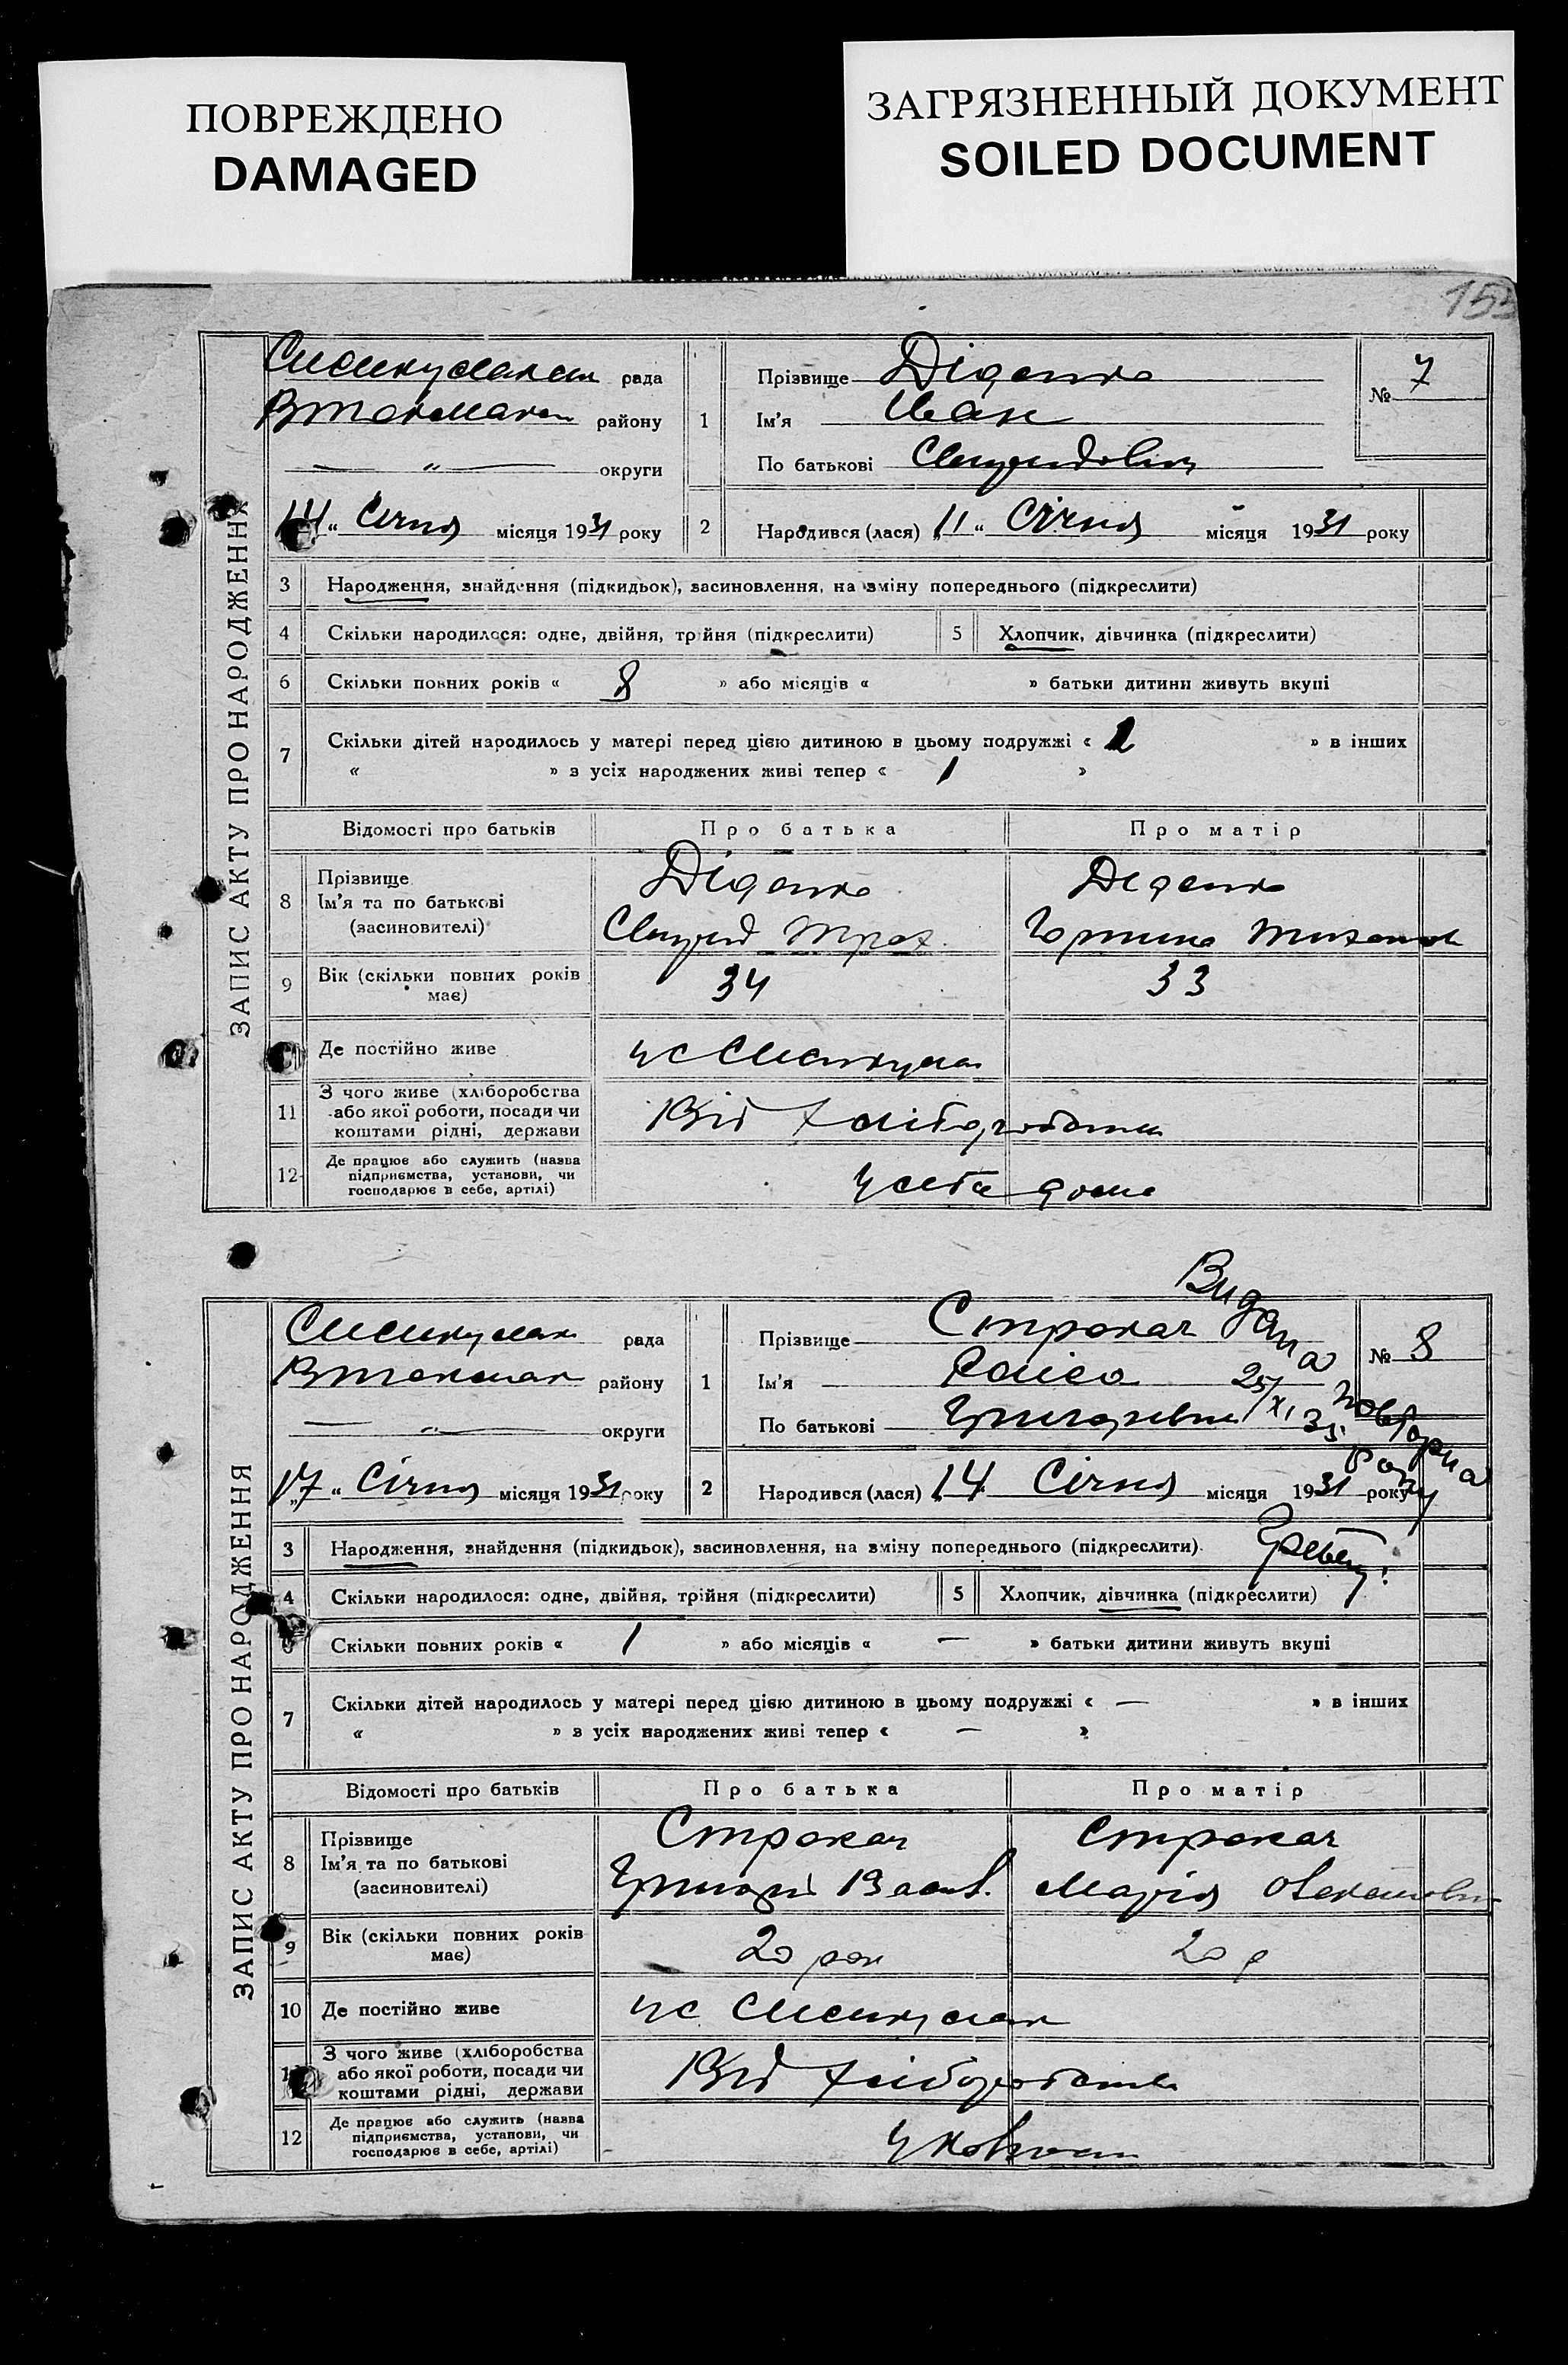 ПОВРЕЖДЕНО
DAMAGED
ЗАГРЯЗНЕННЫЙ ДОКУМЕНТ
SOILED DOCUMENT
ЗАПИС АКТУ ПРО НАРОДЖЕННЯ
рада
району
— „ — округи
14 „ Січня місяця 1931 року
1
Прізвище Діденко
Ім'я Іван
По батькові
№ 7
2 Народився (лася) „ 11 „ Січня місяця 1931 року
3 Народження, знайдення (підкидьок), засиновлення, на зміну попереднього (підкреслити)
4 Скільки народилося: одне, двійня, трійня (підкреслити) 5 Хлопчик, дівчинка (підкреслити)
6 Скільки повних років « 8 » або місяців « » батьки дитини живуть вкупі
7 Скільки дітей народилось у матері перед цією дитиною в цьому подружжі « » в інших
« » з усіх народжених живі тепер « 1 »
Відомості про батьків Про батька Про матір
8 Прізвище Ім'я та по батькові (засиновителі)
Діденко
Діденко
9 Вік (скільки повних років має) 34 33
Де постійно живе
11 З чого живе (хліборобства або якої роботи, посади чи коштами рідні, держави
Від хліборобства
12 Де працює або служить (назва підприємства, установи, чи господарює в себе, артілі)
У себе дома
ЗАПИС АКТУ ПРО НАРОДЖЕННЯ
рада
району
— „ — округи
„ 17 „ Січня місяця 1931 року
1
Прізвище Строкач
Ім'я Раіса
По батькові Григоровна
№ 8
Видана повторна
25/XI 35 року
2 Народився (лася) „ 14 Січня місяця 1931 року
3 Народження, знайдення (підкидьок), засиновлення, на зміну попереднього (підкреслити).
4 Скільки народилося: одне, двійня, трійня (підкреслити) 5 Хлопчик, дівчинка (підкреслити)
6 Скільки повних років « 1 » або місяців « — » батьки дитини живуть вкупі
7 Скільки дітей народилось у матері перед цією дитиною в цьому подружжі « — » в інших
« » з усіх народжених живі тепер « — »
Відомості про батьків Про батька Про матір
8 Прізвище Ім'я та по батькові (засиновителі)
Строкач Строкач
Григорій Марія
9 Вік (скільки повних років має) 20 рок 20 р
10 Де постійно живе
З чого живе (хліборобства або якої роботи, посади чи коштами рідні, держави
Від хліборобства
12 Де працює або служить (назва підприємства, установи, чи господарює в себе, артілі)